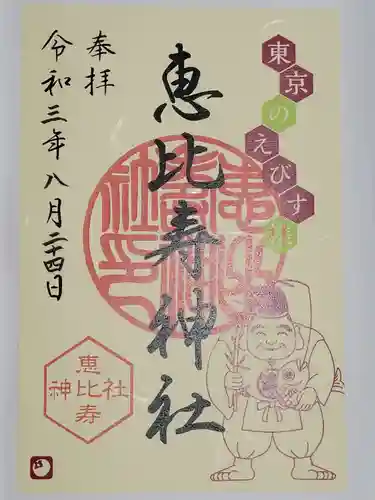 東京のえびす様
恵比寿神社
奉拝
令和三年八月二十四日
恵比寿
神社